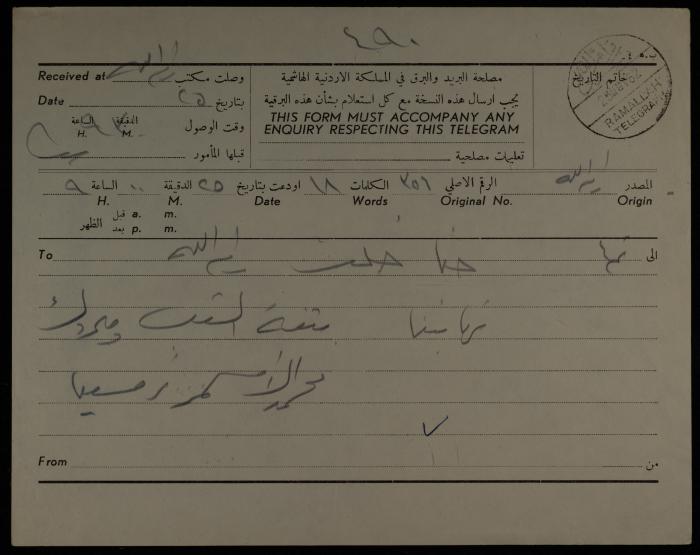 ٤٩٠
Received at رام الله وصلت مكتب
Date ٢٥ بتاريخ
الساعة الدقيقة وقت الوصول
H. M.
قبلها المأمور
مصلحة البريد والبرق في المملكة الاردنية الهاشمية
يجب ارسال هذه النسخة مع كل استعلام بشأن هذه البرقية
THIS FORM MUST ACCOMPANY ANY
ENQUIRY RESPECTING THIS TELEGRAM
تعليمات مصلحية
خاتم التاريخ
RAMALLAH
TELEGRAPH
المصدر رام الله الرقم الاصلي ٣٥٦ الكلمات ١٨ اودعت بتاريخ ٢٥ الدقيقة ٠٠ الساعة ٩
Origin Original No. Words Date M. H.
قبل a. m.
الظهر
بعد p. m.
To الى حنا خلف رام الله
تهانينا بثقة الشعب ومبروك
محمد
From من